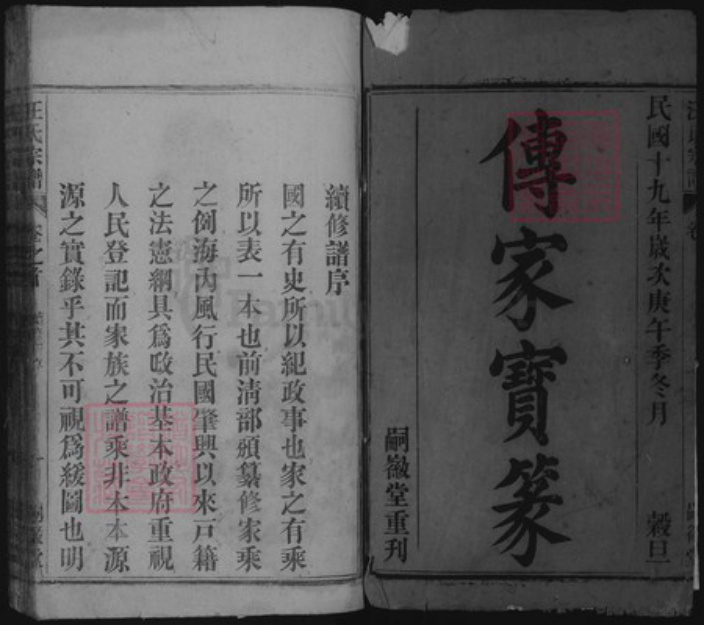 民國十九年歲次庚午季冬月 穀旦
傳家寶篆
嗣徽堂重刊
續修譜序
國之有史所以紀政事也家之有乘
所以表一本也前淸部頒纂修家乘
之例海內風行民國肇興以來戸籍
之法憲綱具爲政治基本政府重視
人民登記而家族之譜乘非本本源
源之實錄乎其不可視爲緩圖也明
汪氏宗譜 卷之首